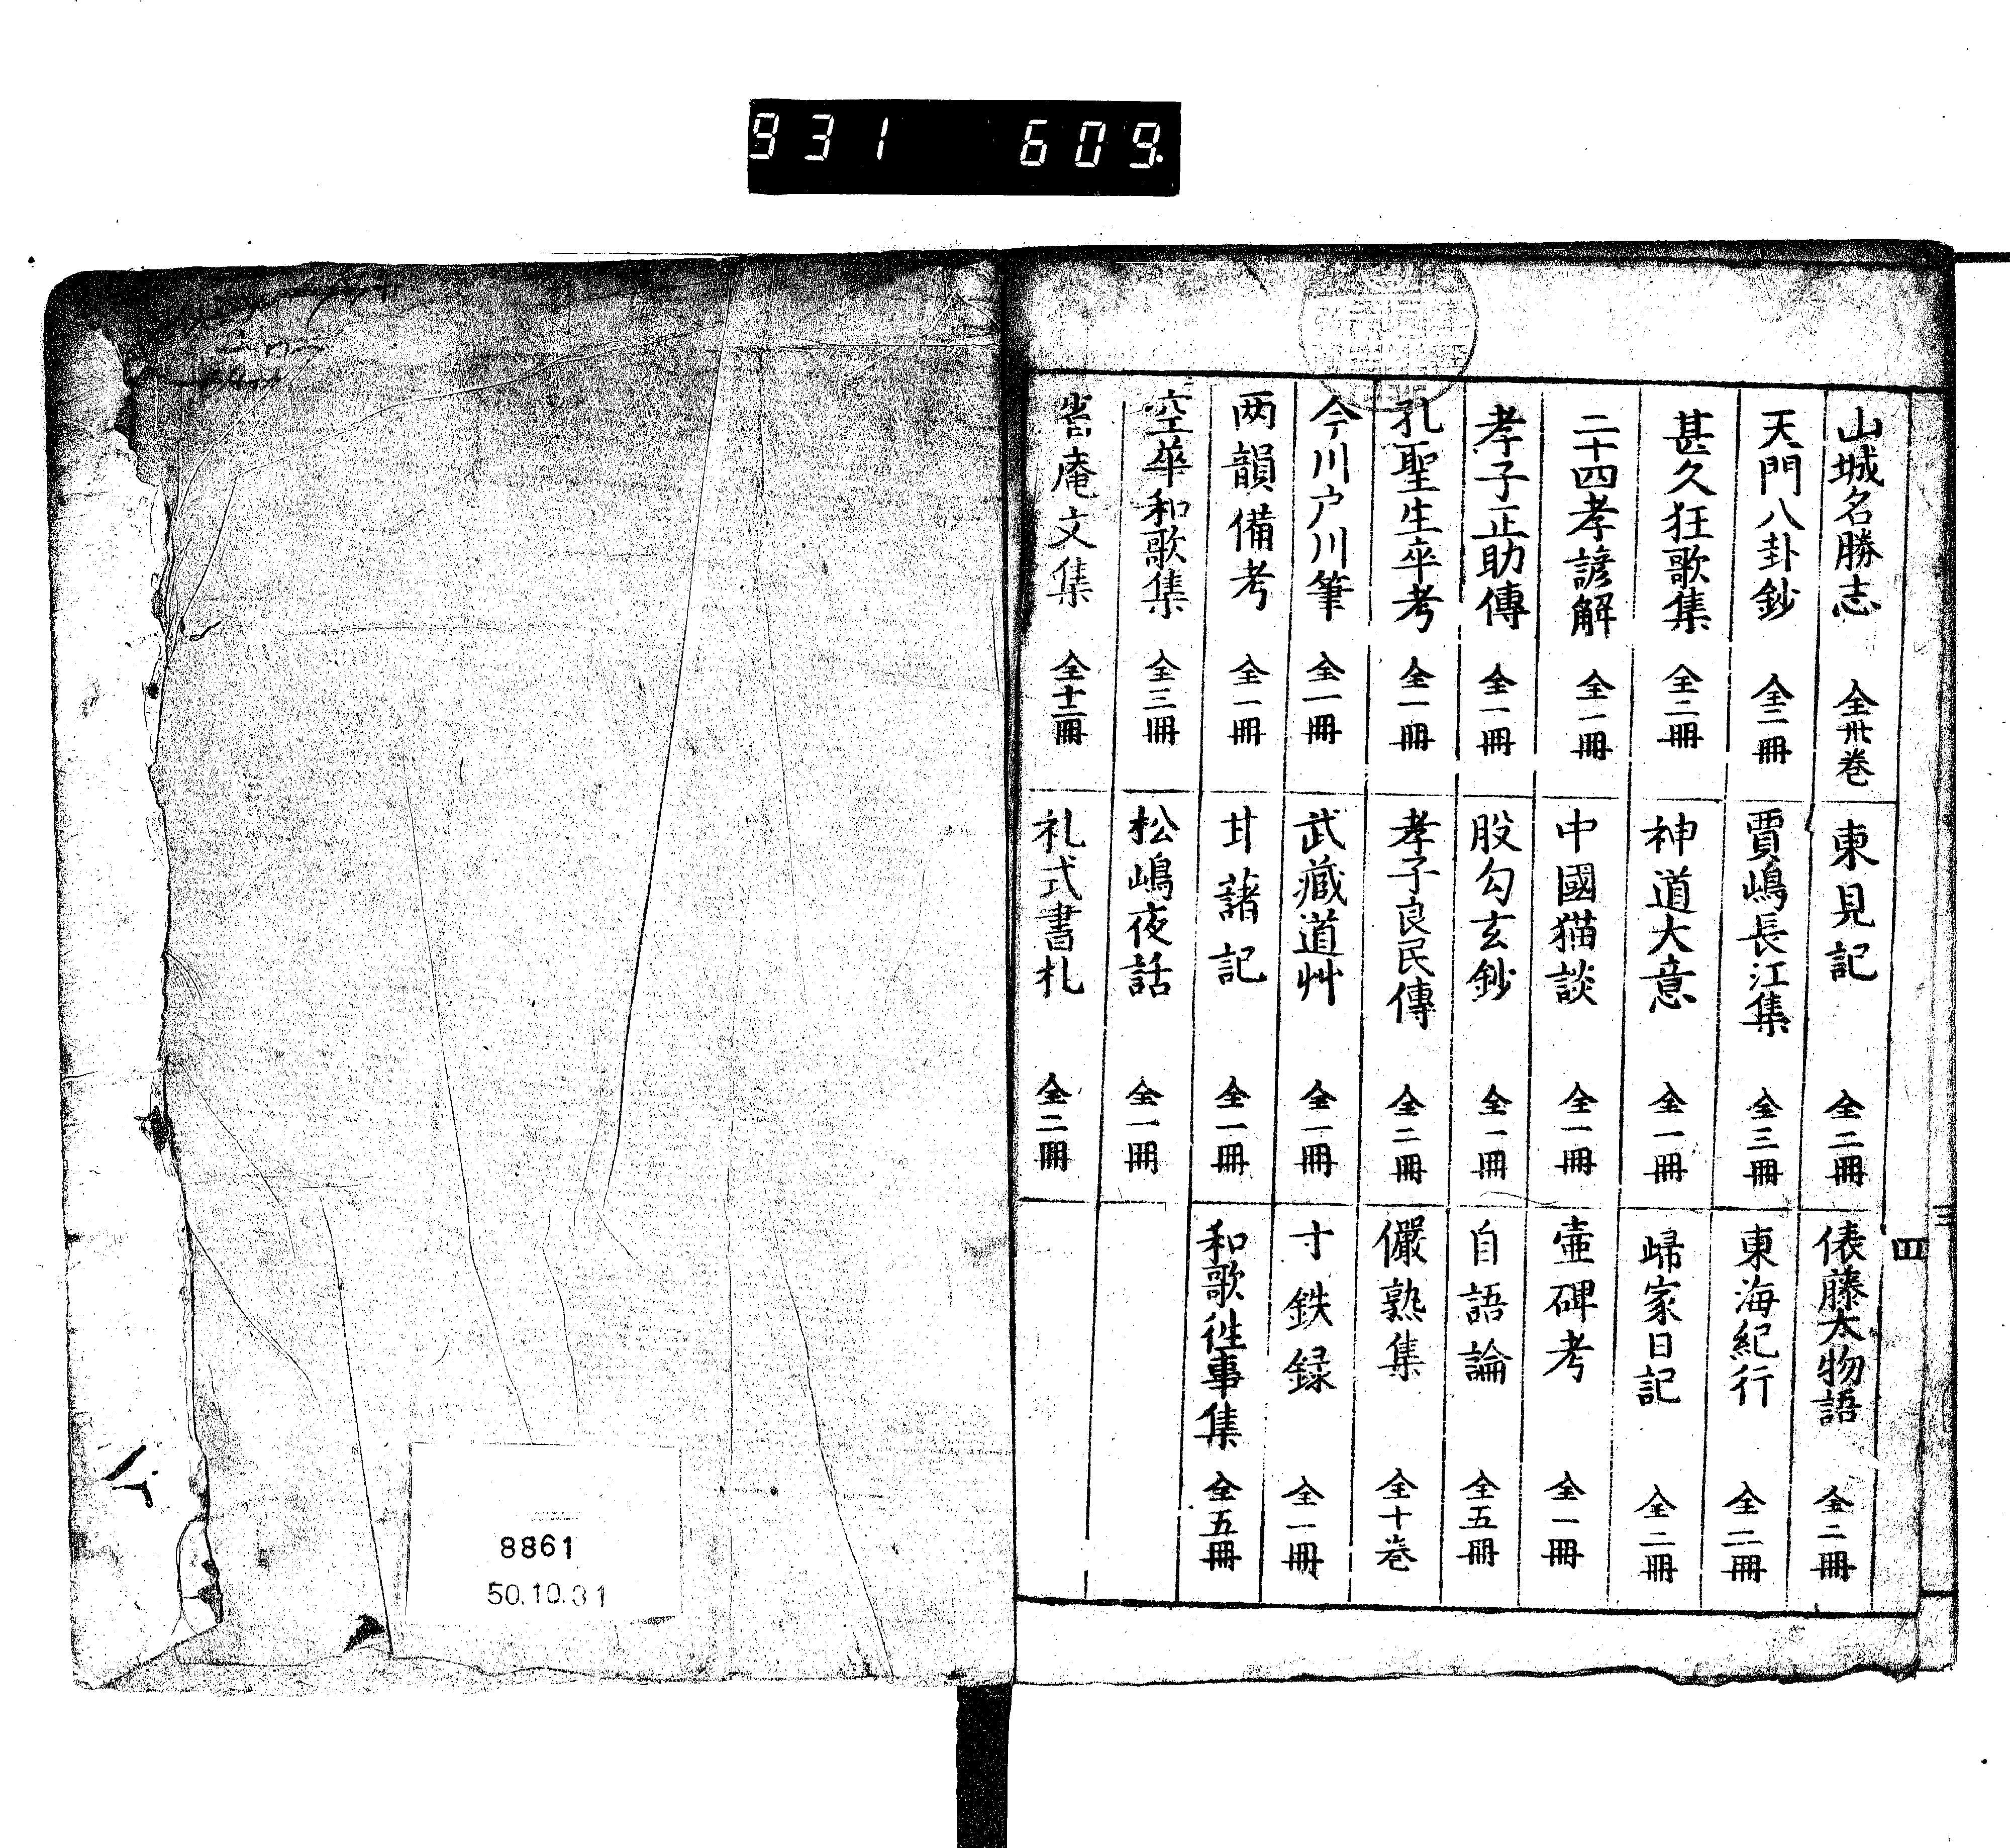 931 609.
山城名勝志 全卅巻
天門八卦鈔 全二冊
甚久狂歌集 全二冊
二十四孝諺解 全一冊
孝子正助傳 全一冊
孔聖生卒考 全一冊
今川戸川筆 全一冊
两韻備考 全一冊
空華和歌集 全三冊
省庵文集 全十二冊
東見記 全二冊
賈嶋長江集 全三冊
神道大意 全一冊
中國猫談 全一冊
股勾玄鈔 全一冊
孝子良民傳 全二冊
武藏道艸 全一冊
甘藷記 全一冊
松嶋夜話 全一冊
礼式書札 全二冊
俵藤太物語 全二冊
東海紀行 全二冊
歸家日記 全二冊
壷碑考 全一冊
自語論 全五冊
儼塾集 全十巻
寸鉄録 全一冊
和歌徃事集 全五冊
四
8861
50.10.31